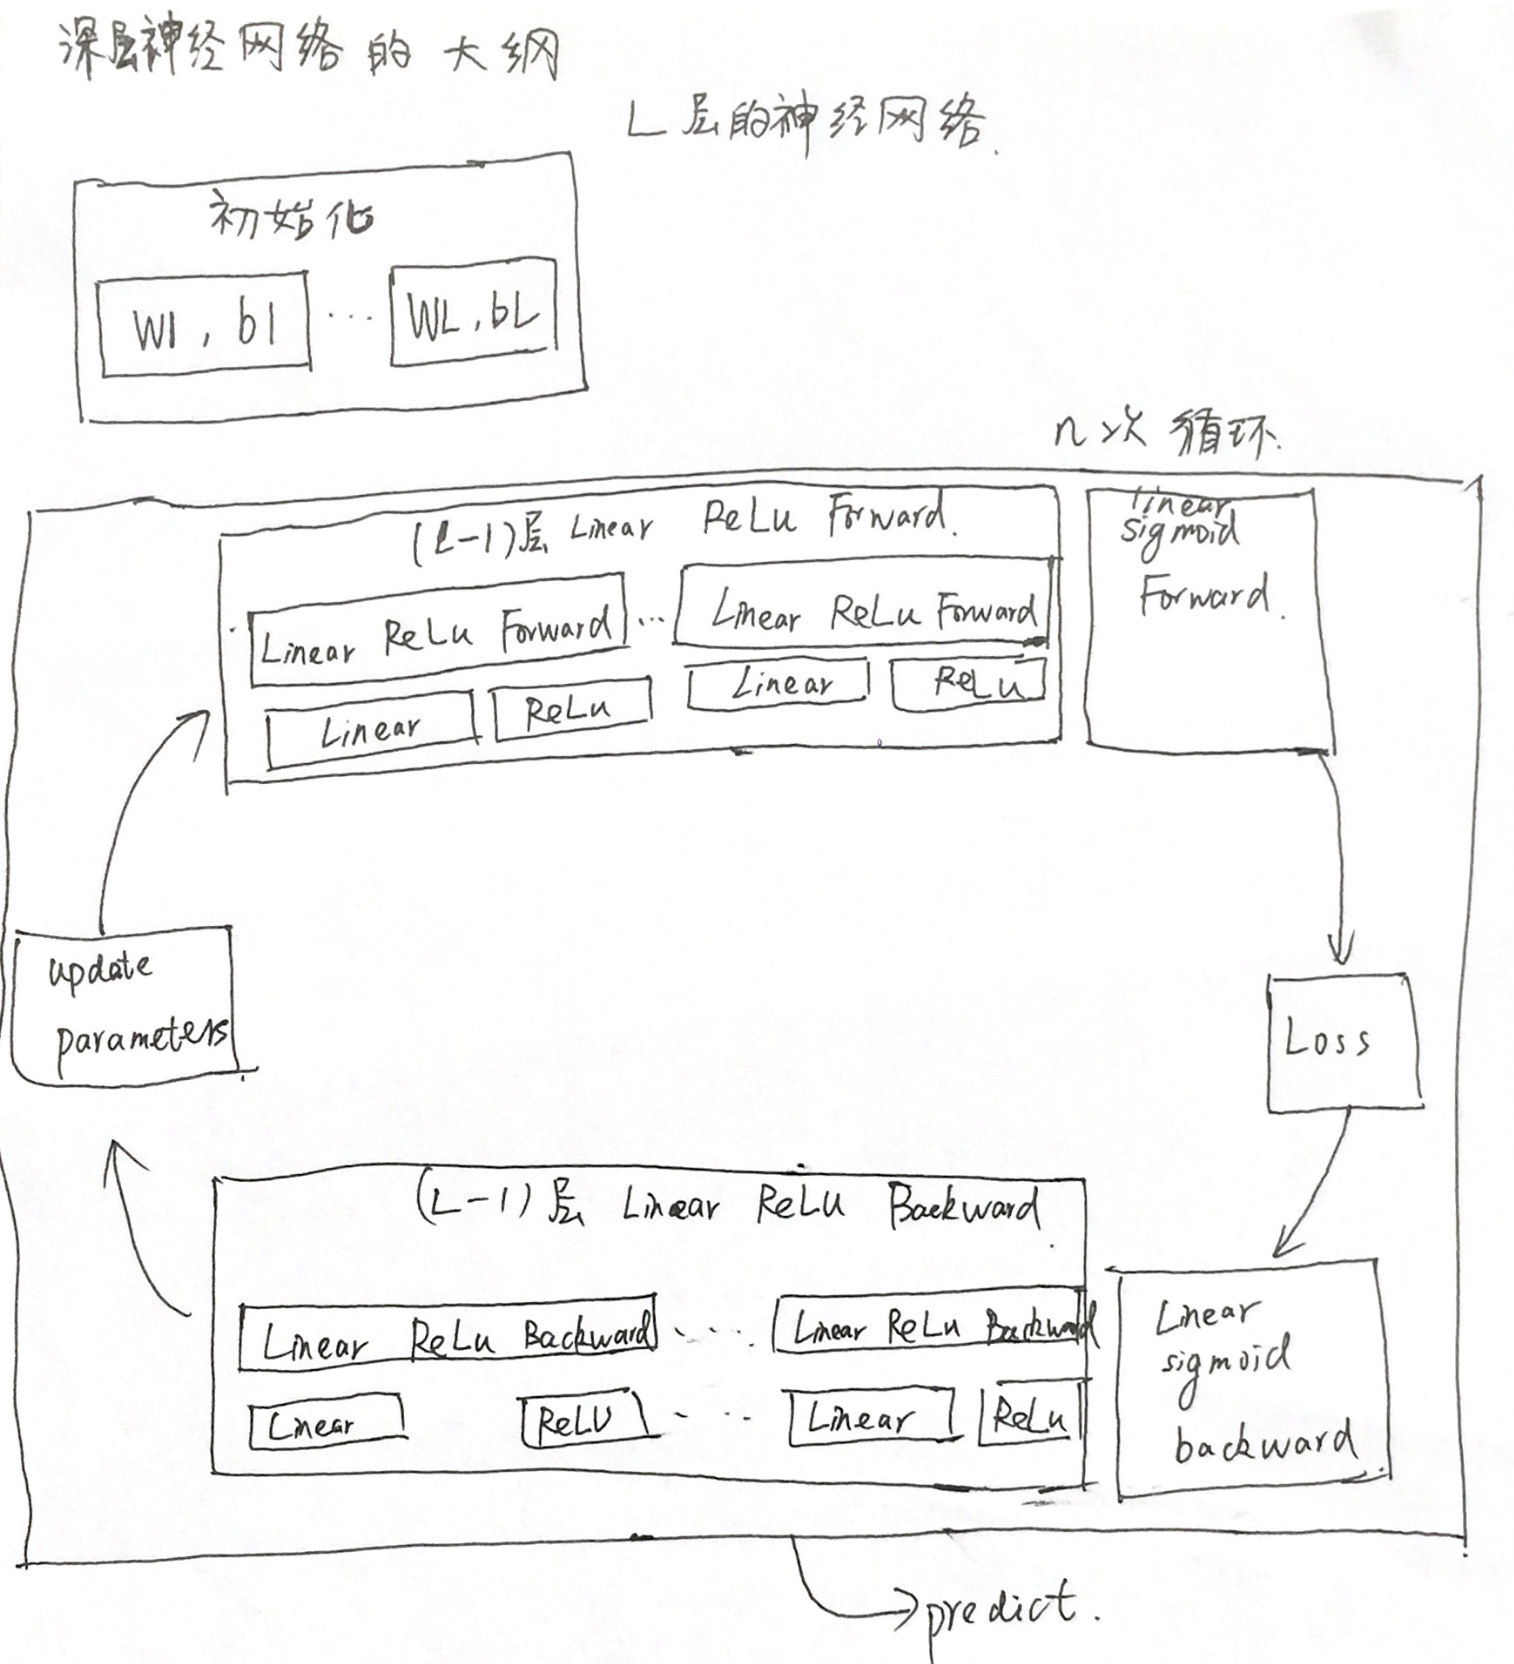 深层神经网络的大纲
L层的神经网络.
初始化
W1, b1 ... WL, bL
n次循环.
(L-1)层 Linear ReLu Forward.
Linear ReLu Forward ... Linear ReLu Forward
Linear ReLu Linear ReLu
linear
sigmoid
Forward.
update
parameters
Loss
(L-1)层 Linear ReLu Backward
Linear ReLu Backward .... Linear ReLu Backward
Linear ReLU ... Linear ReLu
Linear
sigmoid
backward
predict.